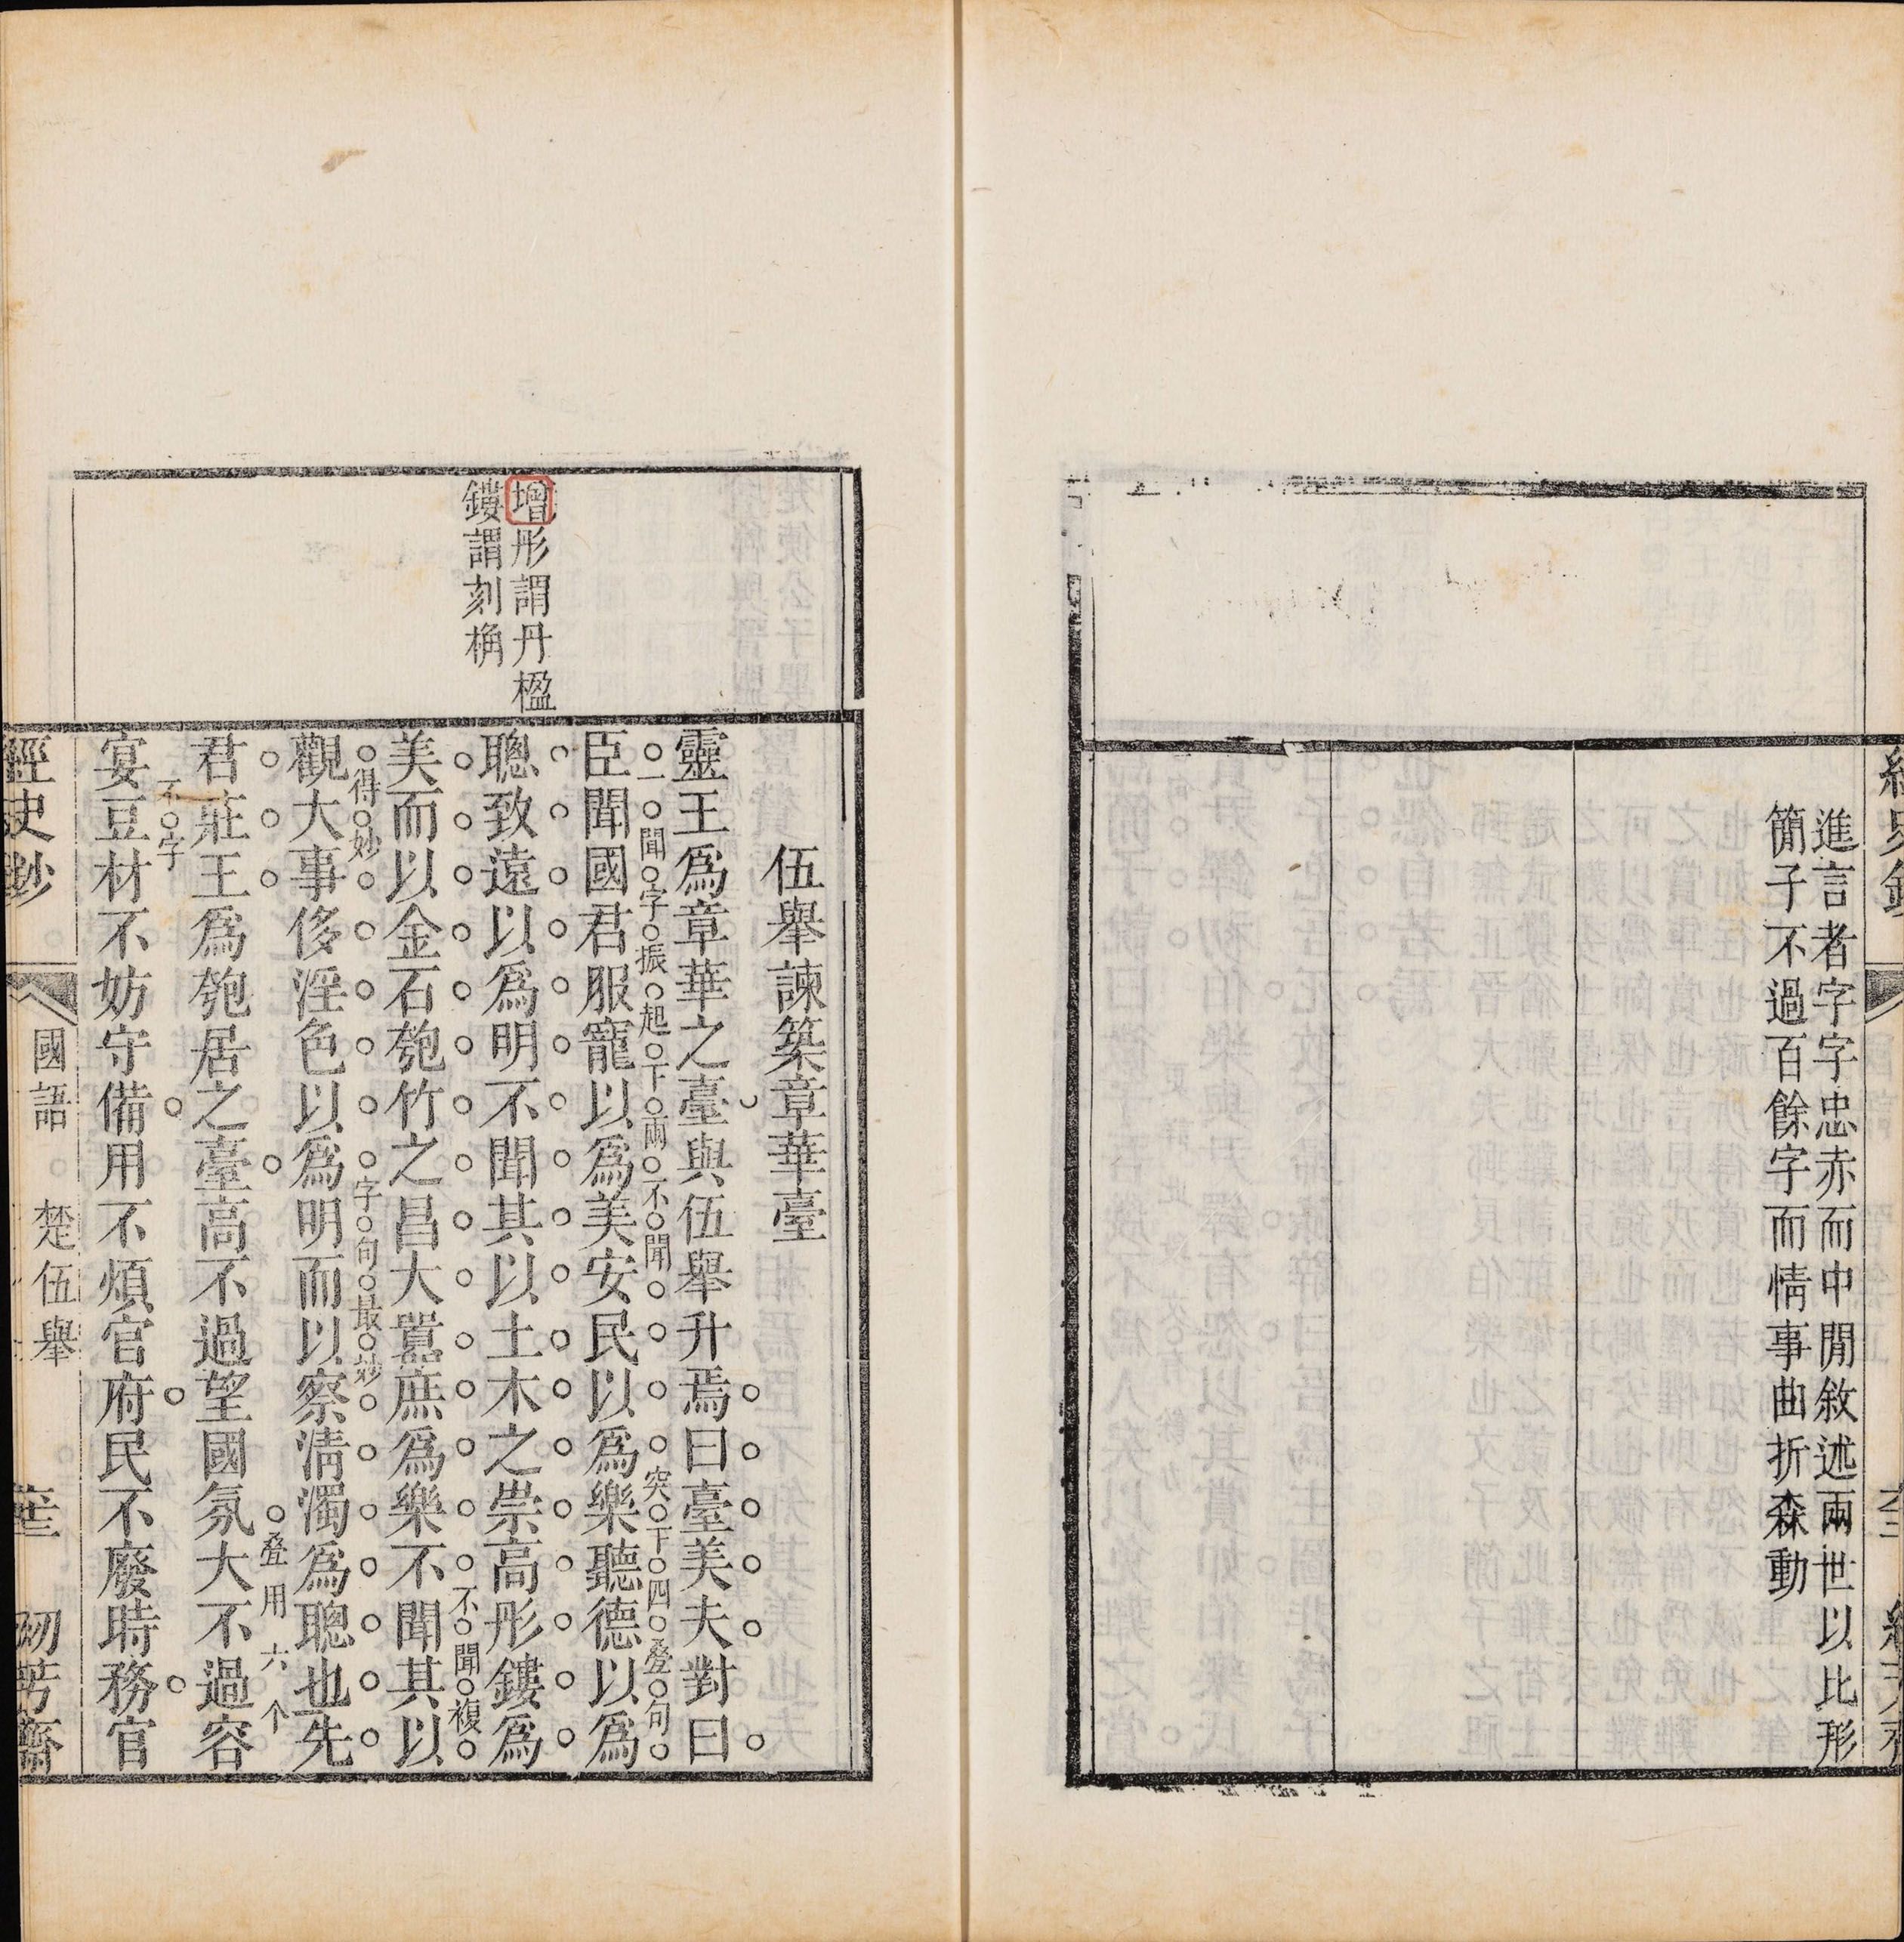 進言者字字忠赤而中閒敘述兩世以比形
簡子不過百餘字而情事曲折森動
增彤謂丹楹
鏤謂刻桷
伍舉諫築章華臺
靈王爲章華之臺與伍舉升焉曰臺美夫對曰
臣聞國君服寵以爲美安民以爲樂聽德以爲
一聞字振起下兩不聞
突下四叠句
聰致遠以爲明不聞其以土木之崇高彤鏤爲
美而以金石匏竹之昌大囂庶爲樂不聞其以
不聞複
觀大事侈淫色以爲明而以察淸濁爲聰也先
得妙
字句最妙
君莊王爲匏居之臺高不過望國氛大不過容
叠用六个
不字
宴豆材不妨守備用不煩官府民不廢時務官
經史鈔
國語 楚伍舉